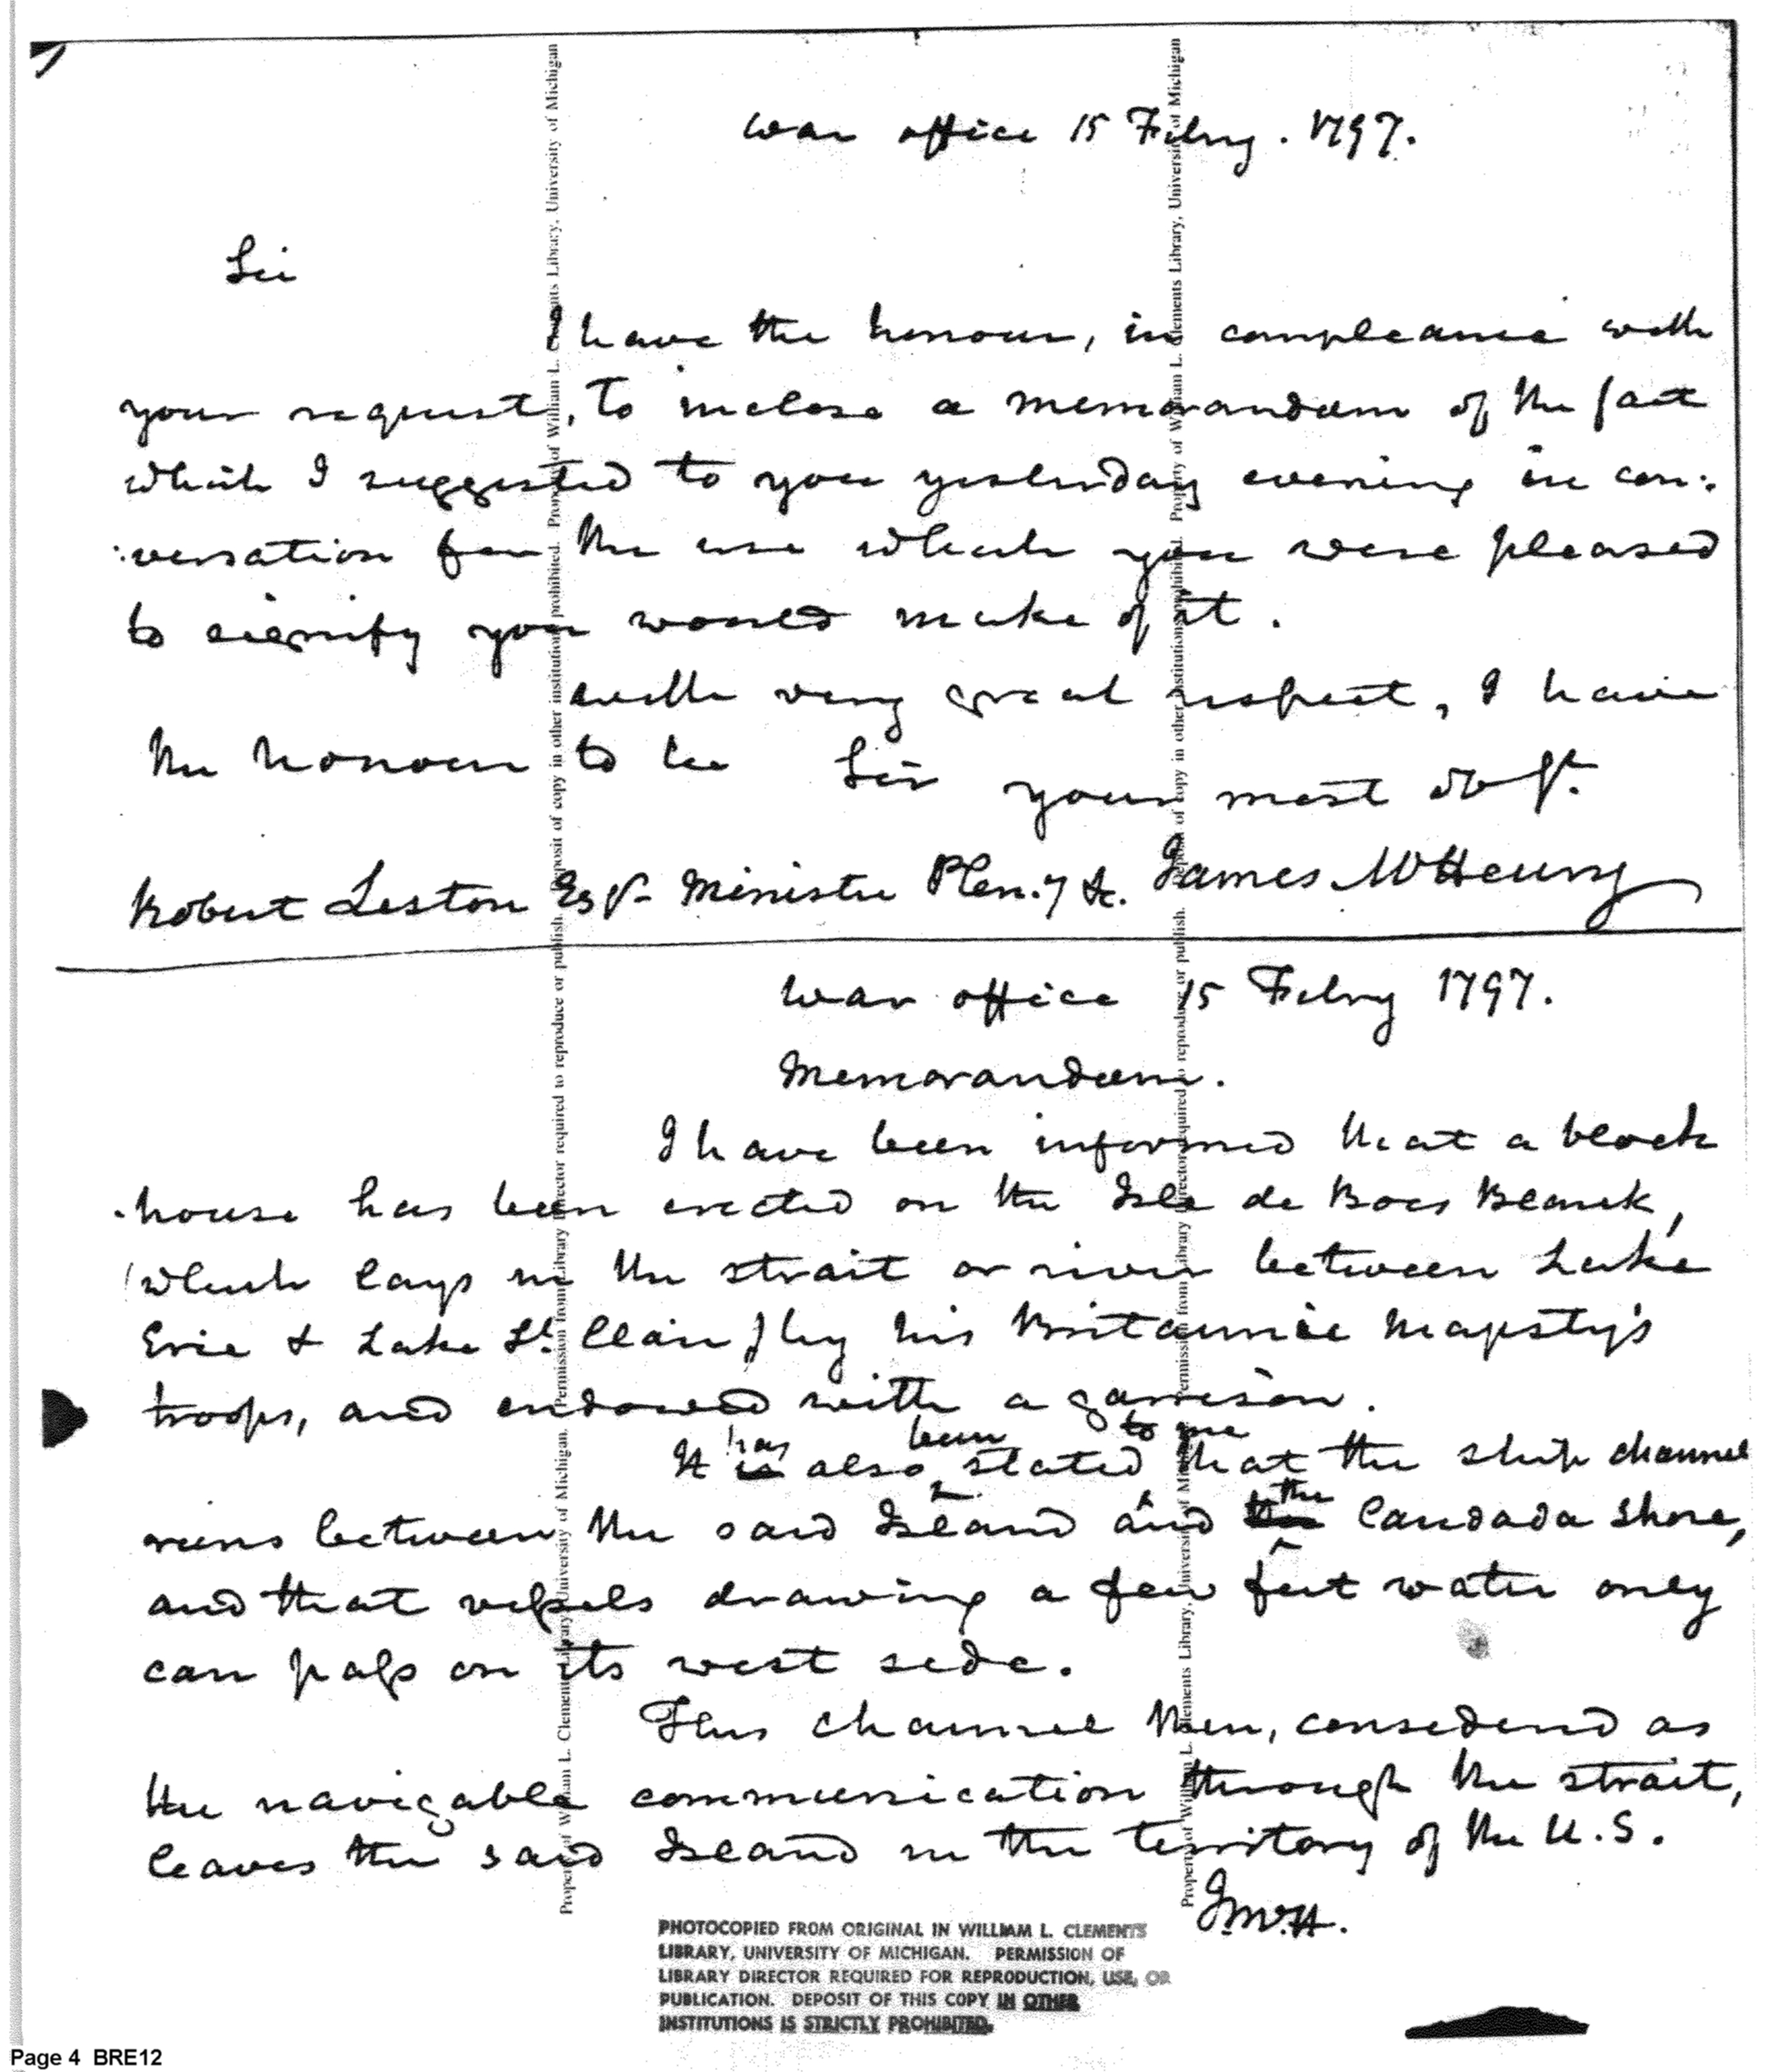 War office 15 Febry. 1797.
Sir
I have the honour, in compleance with
your request, to inclose a memorandum of the fact
which I suggested to you yesterday evening in con:
:versation for the use which you were pleased
to signify you would make of it.
with very great respect, I have
the honour to be Sir your most obt.
Robert Liston Esqr. Minister Plen.y &c. James McHenry
War office 15 Febry 1797.
Memorandum.
I have been informed that a block
-house has been erected on the Isle de Bois Blanck,
(which lays in the strait or river between Lake
Erie & Lake St. Clair) by his Britannic Majesty's
troops, and endowed with a garrison.
It is has also been stated to me that the ship channel
runs between the said Island and the the Candada shore,
and that vessels drawing a few feet water only
can pass on its west side.
This channel then, considered as
the navigable communication through the strait,
leaves the said Island in the territory of the U.S.
J.McH.
PHOTOCOPIED FROM ORIGINAL IN WILLIAM L. CLEMENTS
LIBRARY, UNIVERSITY OF MICHIGAN. PERMISSION OF
LIBRARY DIRECTOR REQUIRED FOR REPRODUCTION, USE, OR
PUBLICATION. DEPOSIT OF THIS COPY IN OTHER
INSTITUTIONS IS STRICTLY PROHIBITED.
Page 4 BRE12
Property of William L. Clements Library, University of Michigan. Permission from Library Director required to reproduce or publish. Deposit of copy in other institutions prohibited. Property of William L. Clements Library, University of Michigan
Property of William L. Clements Library, University of Michigan. Permission from Library Director required to reproduce or publish. Deposit of copy in other institutions prohibited. Property of William L. Clements Library, University of Michigan